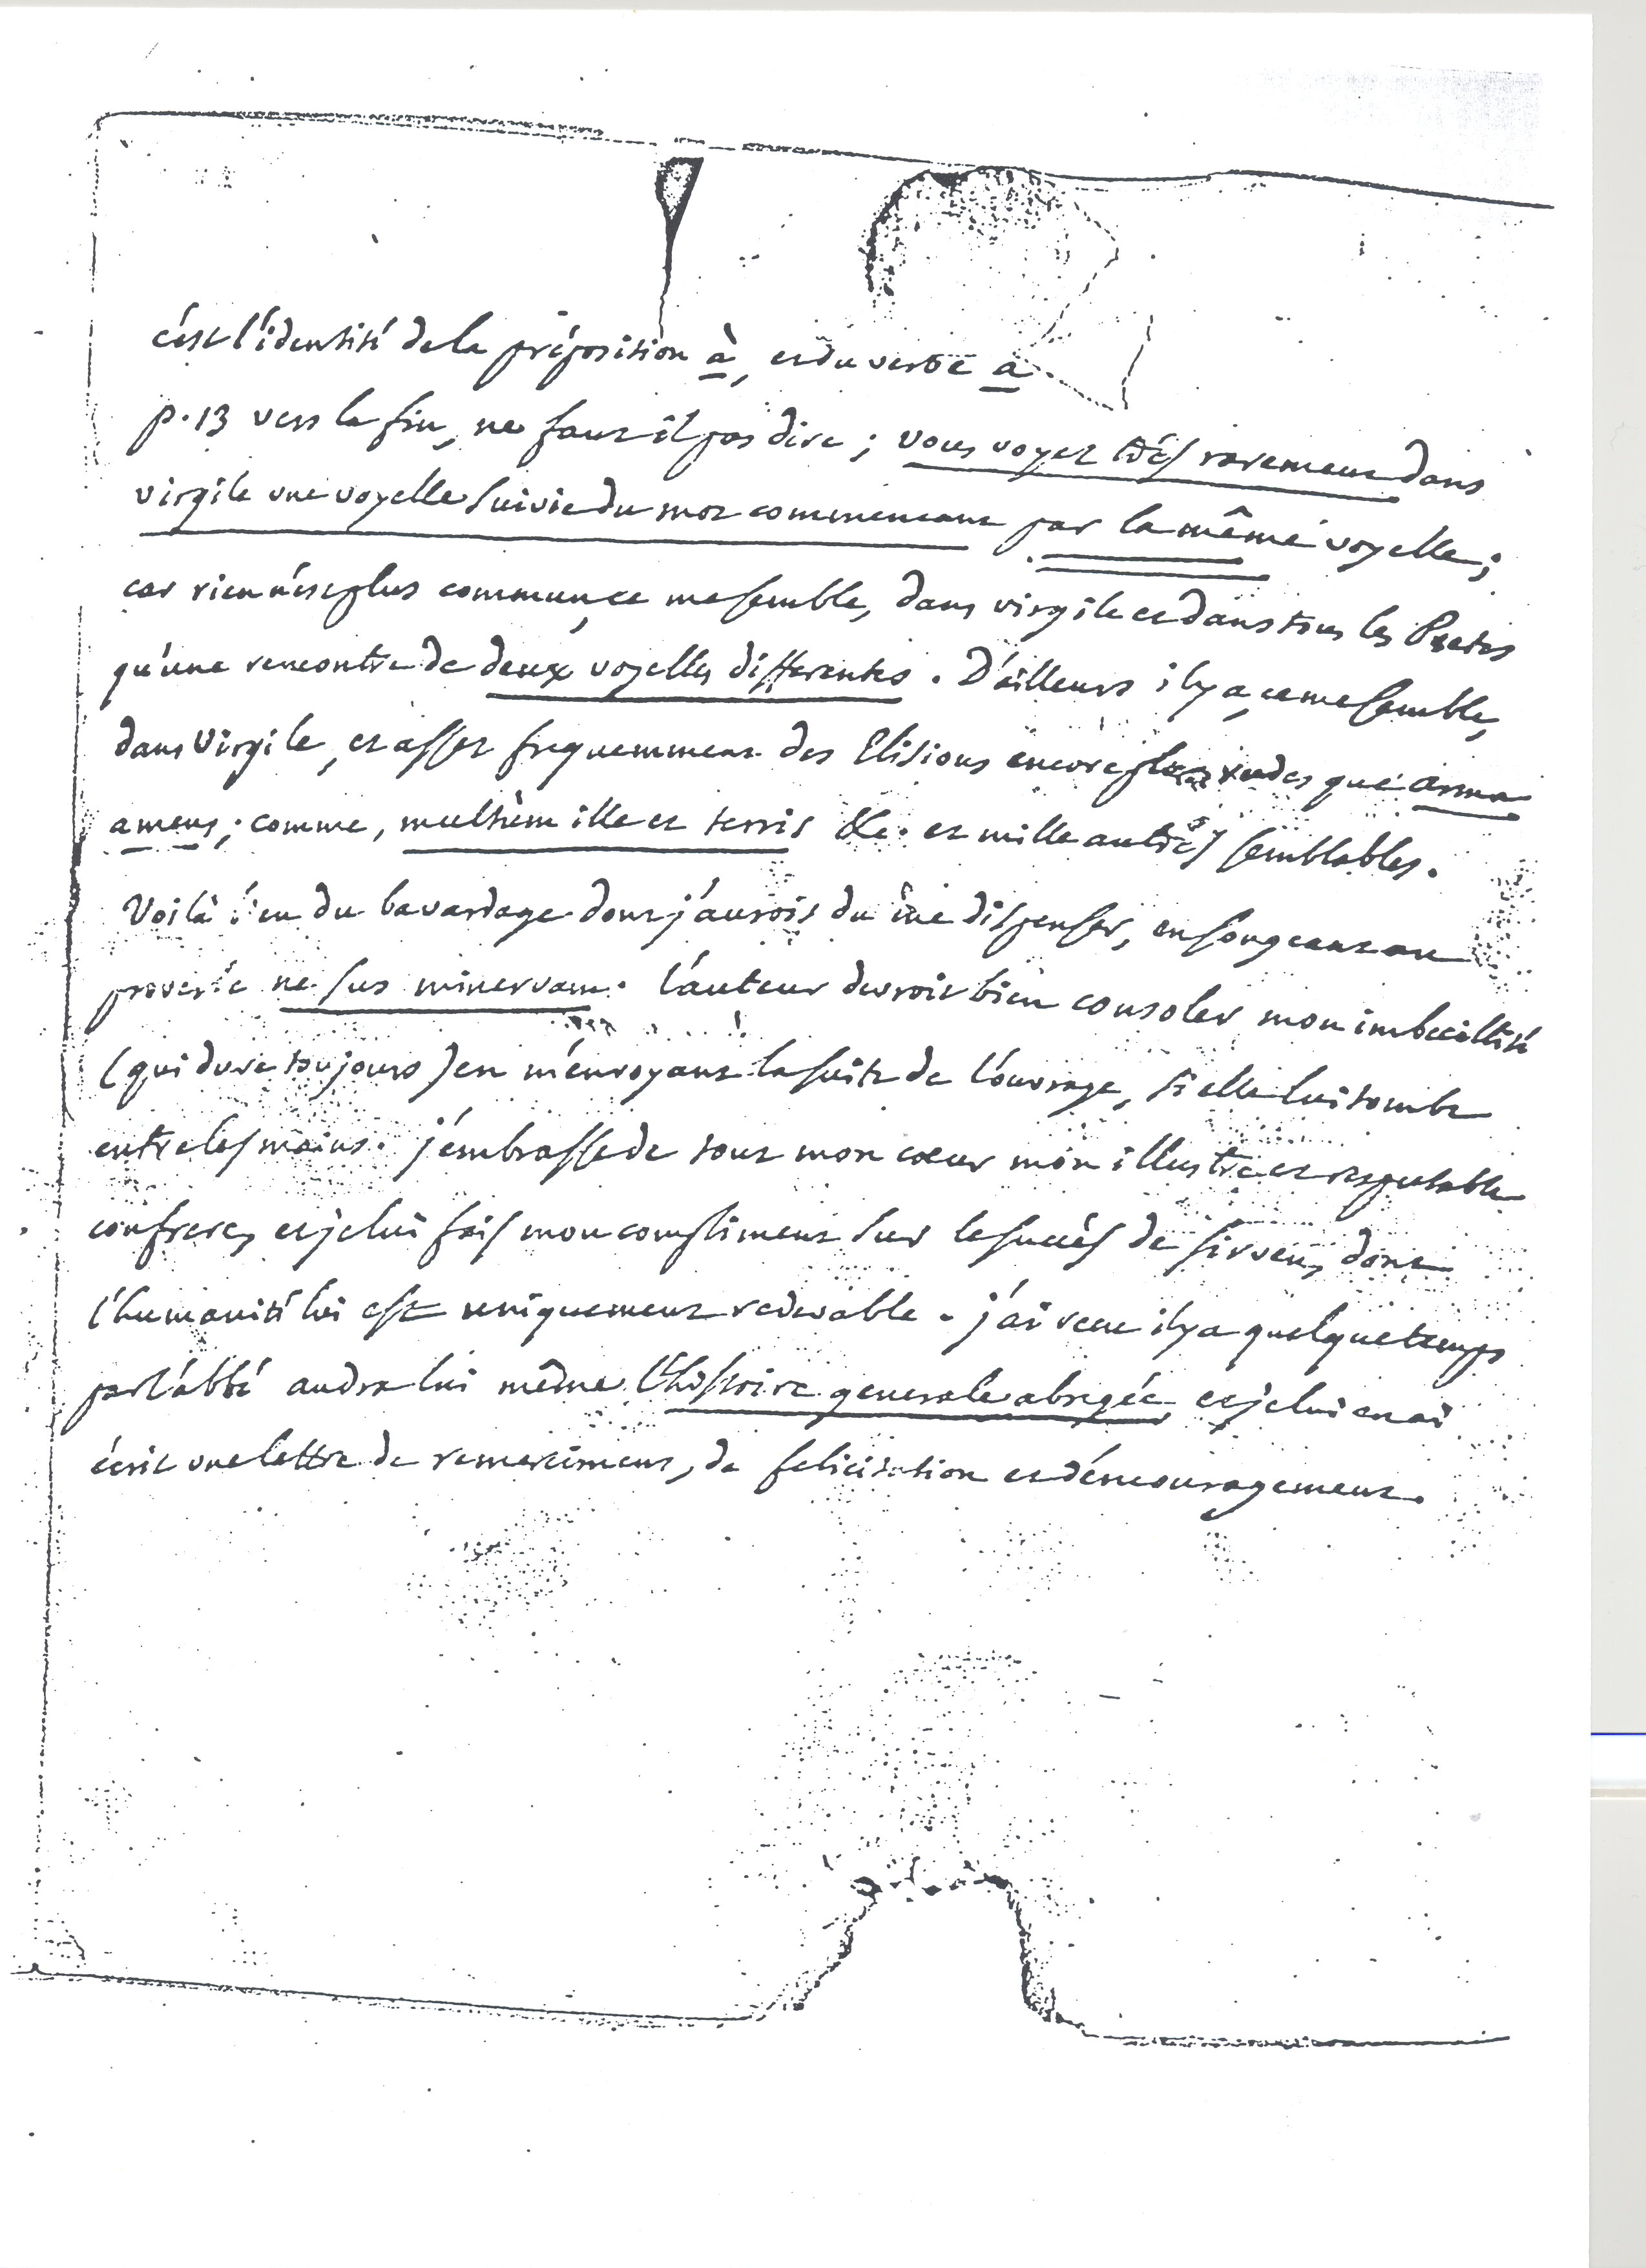 c'est l'identité de la préposition à, et du verbe a
p. 13 vers la fin, ne faut il pas dire; vous voyez très rarement dans
virgile une voyelle suivie du mot commencant par la même voyelle;
car rien n'est plus commun, ce me semble, dans virgile et dans tous les Poetes
qu'une rencontre de deux voyelles differentes. D'ailleurs il y a, ce me semble,
dans Virgile, et assez frequemment des Elisions encore plus rudes que arma
amens; comme, multùm ille et terris &c. et mille autres semblables.
Voilà bien du bavardage dont j'aurois du me dispenser, en songeant au
proverbe ne sus minervam. l'auteur devroit bien consoler mon imbecillité
(qui dure toujours) en m'envoyant la suite de l'ouvrage, si elle lui tombe
entre les mains. j'embrasse de tout mon coeur mon illustre et respectable
confrere, et je lui fais mon compliment sur le succès de sirven, dont
l'humanité lui est uniquement redevable. j'ai receu il y a quelque temps
par l'abbé audra lui même l'histoire generale abregée, et je lui en ai
écrit une lettre de remerciment, de felicitation et d'encouragement.